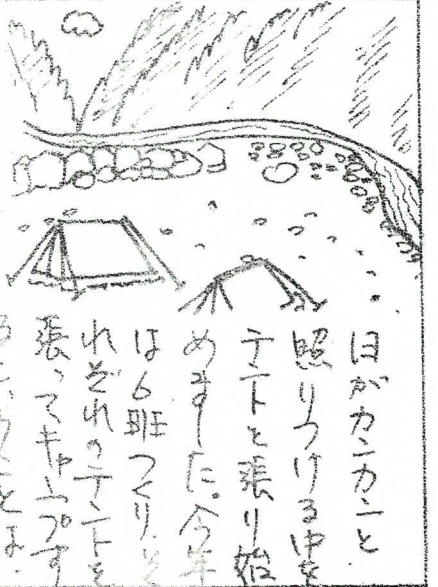 日がカンカンと
照りつける中を
テントを張り始
めました。今年
は6班つくり、そ
れぞれのテントを
張ってキャンプす